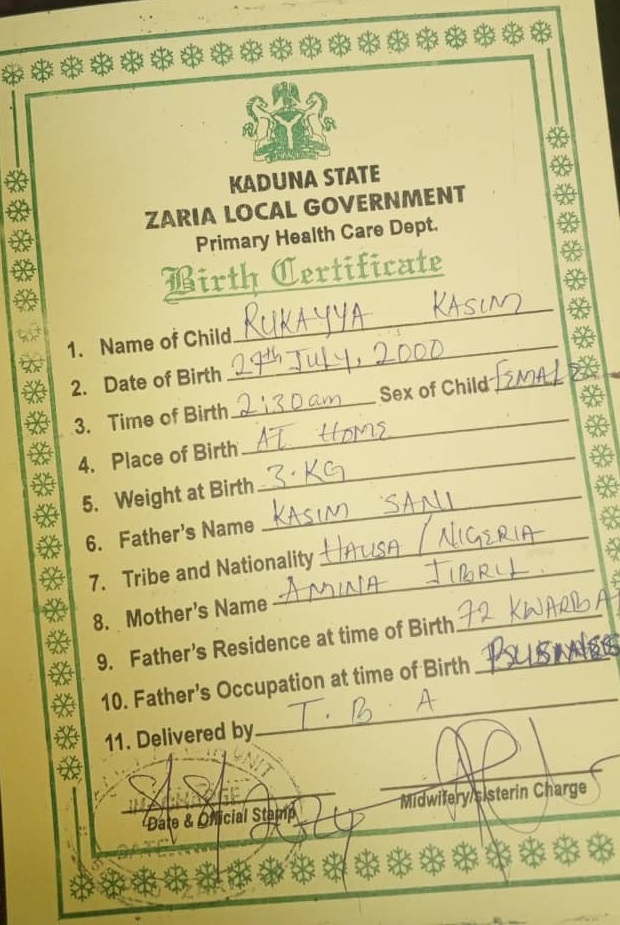 KADUNA STATE
ZARIA LOCAL GOVERNMENT
Primary Health Care Dept.
Birth Certificate
1. Name of Child RUKAYYA KASIM
2. Date of Birth 27th JULY, 2000
3. Time of Birth 2:30am Sex of Child FEMALE
4. Place of Birth AT HOME
5. Weight at Birth 3.KG
6. Father's Name KASIM SANI
7. Tribe and Nationality HAUSA / NIGERIA
8. Mother's Name AMINA JIBRIL
9. Father's Residence at time of Birth 72 KWARBAI
10. Father's Occupation at time of Birth BUSINESS
11. Delivered by T.B.A
Date & Official Stamp
Midwifery/sisterin Charge